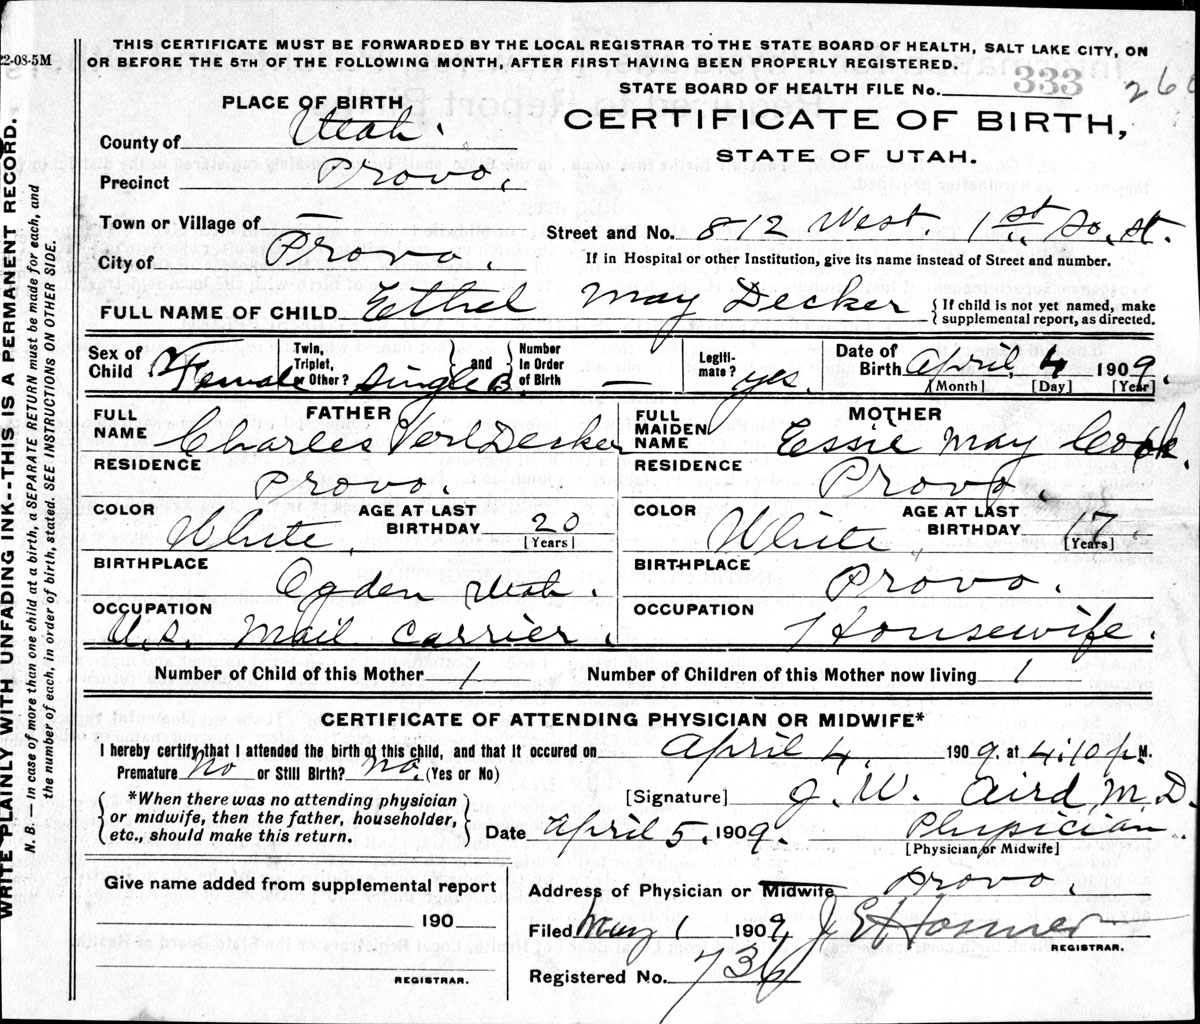 22-08-5M
THIS CERTIFICATE MUST BE FORWARDED BY THE LOCAL REGISTRAR TO THE STATE BOARD OF HEALTH, SALT LAKE CITY, ON
OR BEFORE THE 5TH OF THE FOLLOWING MONTH, AFTER FIRST HAVING BEEN PROPERLY REGISTERED.
STATE BOARD OF HEALTH FILE No. 333 260
PLACE OF BIRTH
CERTIFICATE OF BIRTH,
STATE OF UTAH.
County of Utah.
Precinct Provo.
Town or Village of —
Street and No. 812 West. 1st. So. St.
City of Provo.
If in Hospital or other Institution, give its name instead of Street and number.
FULL NAME OF CHILD Ethel May Decker { If child is not yet named, make
supplemental report, as directed.
Sex of Child Female Twin, Triplet, or Other? Single and Number In Order of Birth — Legitimate? yes. Date of Birth April, 4 1909.
[Month] [Day] [Year]
FATHER
FULL NAME Charles Verl Decker
RESIDENCE Provo.
COLOR White. AGE AT LAST BIRTHDAY 20 [Years]
BIRTHPLACE Ogden Utah.
OCCUPATION U.S. Mail Carrier.
MOTHER
FULL MAIDEN NAME Essie May Cook.
RESIDENCE Provo.
COLOR White. AGE AT LAST BIRTHDAY 17 [Years]
BIRTHPLACE Provo.
OCCUPATION Housewife.
Number of Child of this Mother 1 Number of Children of this Mother now living 1
CERTIFICATE OF ATTENDING PHYSICIAN OR MIDWIFE*
I hereby certify that I attended the birth of this child, and that it occured on April 4. 1909. at 4:10 P. M.
Premature No or Still Birth? No. (Yes or No)
*When there was no attending physician
or midwife, then the father, householder,
etc., should make this return.
[Signature] J. W. Aird M.D.
Date April 5. 1909. Physician.
[Physician or Midwife]
Give name added from supplemental report
190
REGISTRAR.
Address of Physician or Midwife Provo.
Filed May 1 1909, J E Hosmer
REGISTRAR.
Registered No. 736
WRITE PLAINLY WITH UNFADING INK--THIS IS A PERMANENT RECORD.
N. B.— In case of more than one child at a birth, a SEPARATE RETURN must be made for each, and
the number of each, in order of birth, stated. SEE INSTRUCTIONS ON OTHER SIDE.